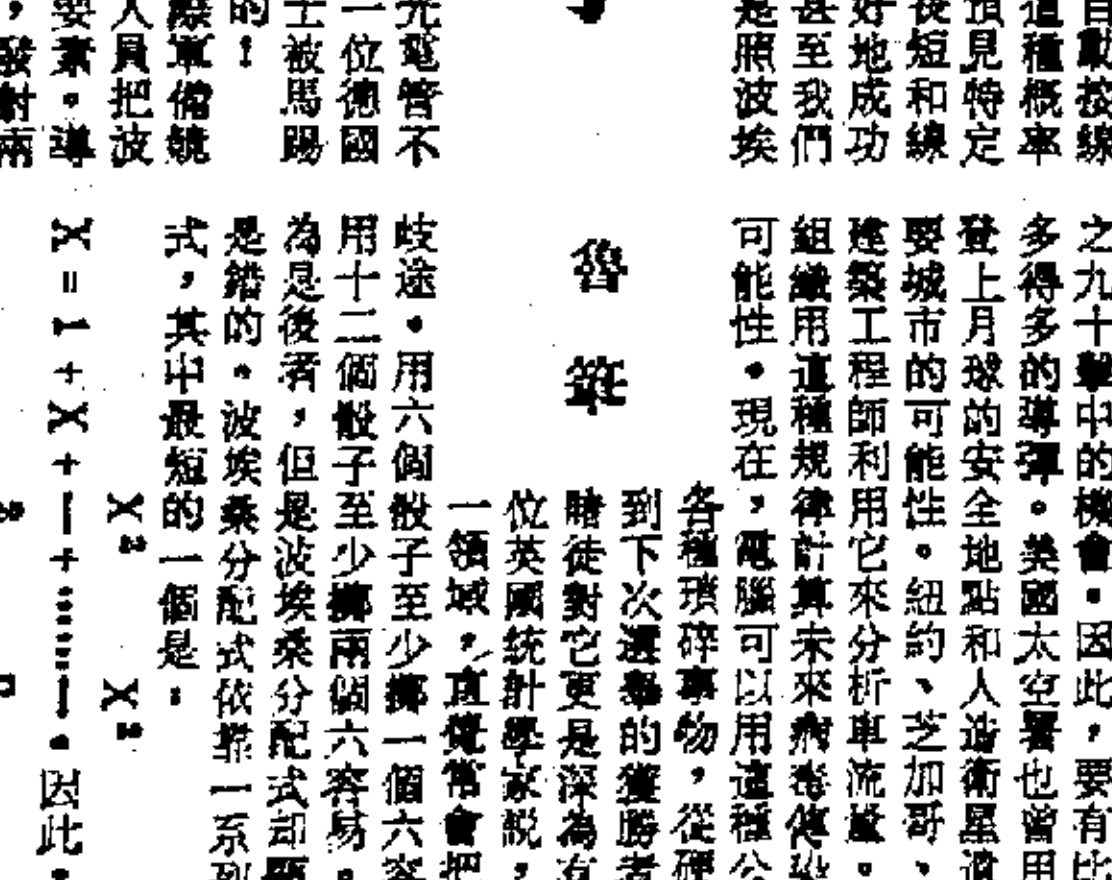 自動按線
這種概率
預見特定
後短和線
好地成功
甚至我們
是照波埃
光電管不
一位德國
士被馬踢
的！
際軍備競
人員把波
要素。導
，發射兩
之九十擊中的機會。因此，要有比
多得多的導彈。美國太空署也曾用
登上月球的安全地點和人造衛星道
要城市的可能性。紐約、芝加哥、
建築工程師利用它來分析車流量。
組織用這種規律計算未來病毒傳染
可能性。現在，電腦可以用這種公
魯筆
各種瑣碎事物，從硬
到下次選舉的獲勝者
賭徒對它更是深為有
位英國統計學家説，
一領域，直覺常會把
歧途。用六個骰子至少擲一個六容
用十二個骰子至少擲兩個六容易。
為是後者，但是波埃桑分配式却顯
是錯的。波埃桑分配式依靠一系列
式，其中最短的一個是：
X=1+X+X²+……X²。因此，